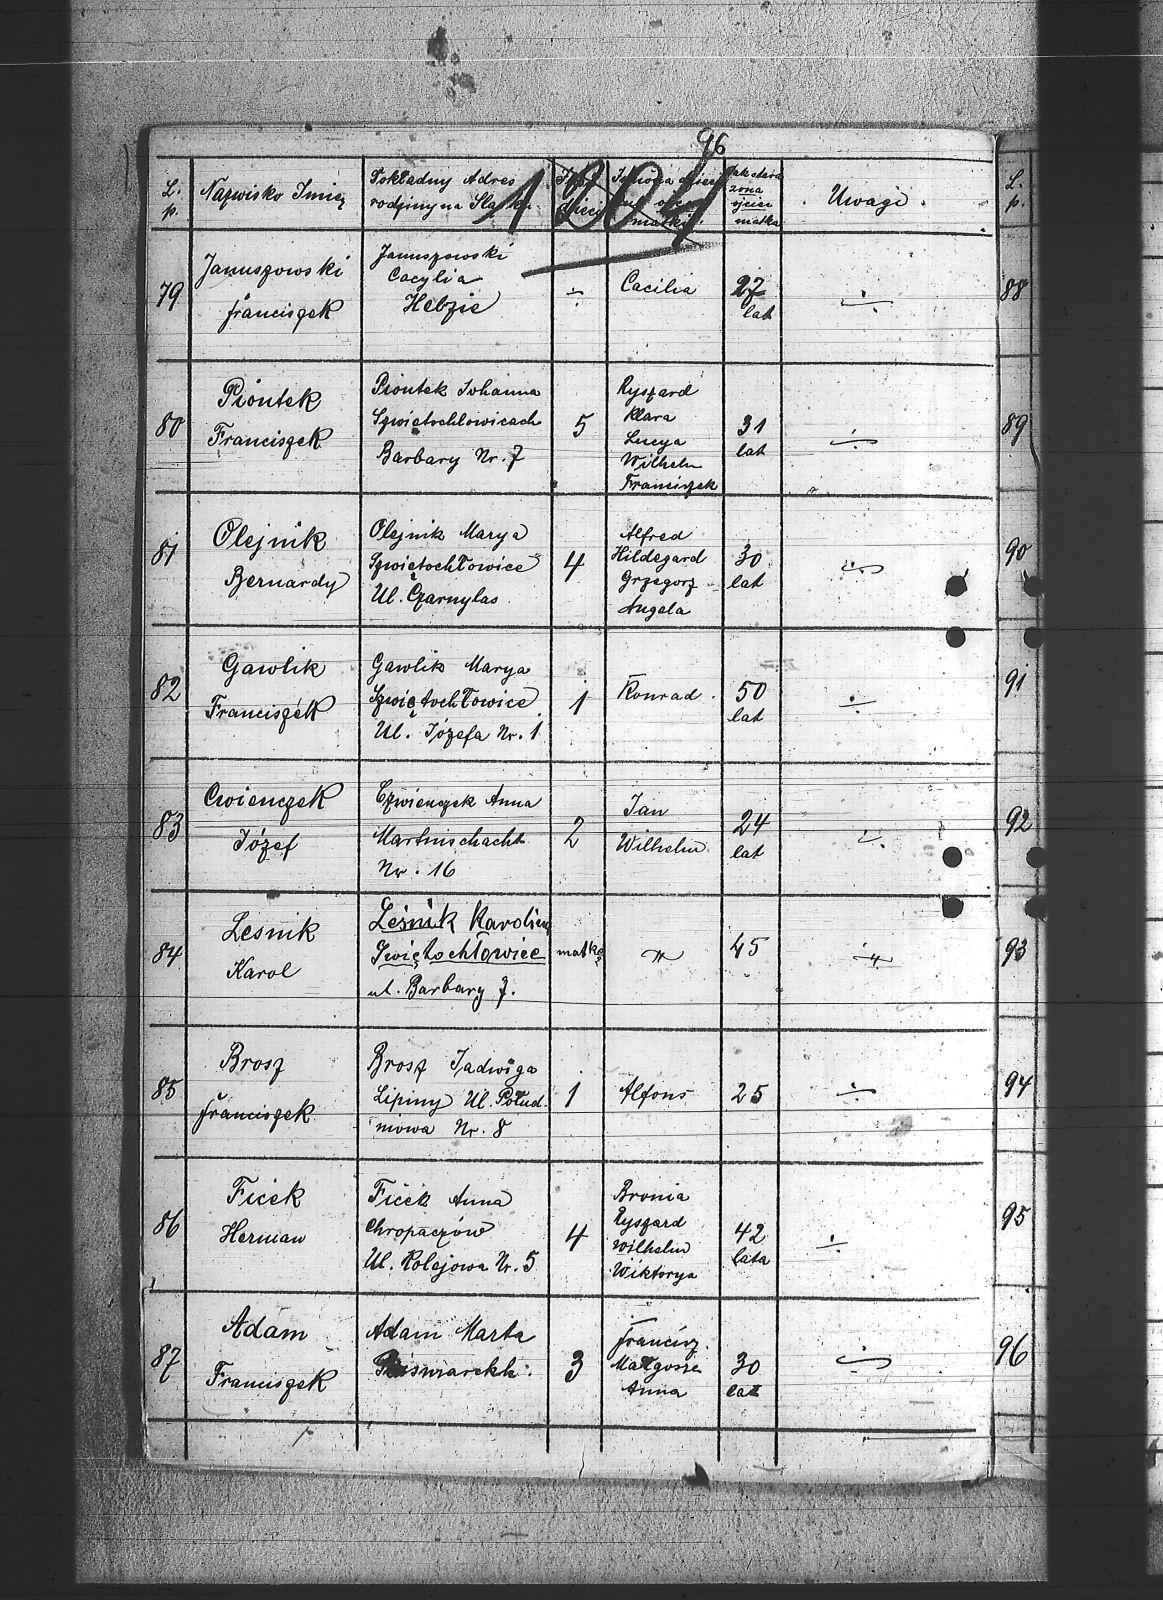 96
1204
L. p.
Nazwisko Imię
Dokładny Adres
rodziny na Śląsku.
Imiona dzieci
matki
żona
ojciec
matka
Uwagi.
L. p.
79
Januszowski
Franciszek
Januszowski
Cacylia
Hebzie
÷
Cacilia
27
lat
÷
88
80
Piontek
Franciszek
Piontek Johanna
Szwietochlowicach
Barbary Nr. 7
5
Ryszard
Klara
Lucya
Wilhelm
Franciszek
31
lat
÷
89
81
Olejnik
Bernardy
Olejnik Marya
Szwiętochłowice
Ul. Czarnylas
4
Alfred
Hildegard
Grzegorz
Angela
30
lat
÷
90
82
Gawlik
Franciszek
Gawlik Marya
Szwiętochłowice
Ul. Józefa Nr. 1
1
Konrad.
50
lat
÷
91
83
Cwienczek
Józef
Czwienczek Anna
Martinschacht
Nr. 16
2
Jan
Wilhelm
24
lat
÷
92
84
Lesnik
Karol
Leśnik Karolina
Świętochłowice
ul. Barbary 7.
matka
"
45
"
93
85
Brosz
Franciszek
Brosz Jadwiga
Lipiny Ul. Połud.
niowa Nr. 8
1
Alfons
25
÷
94
86
Ficek
Herman
Ficek Anna
Chropaczów
Ul. Kolejowa Nr. 5
4
Bronia
Ryszard
Wilhelm
Wiktorya
42
lata
÷
95
87
Adam
Franciszek
Adam Marta
3
Francisz.
Anna
30
lat
÷
96